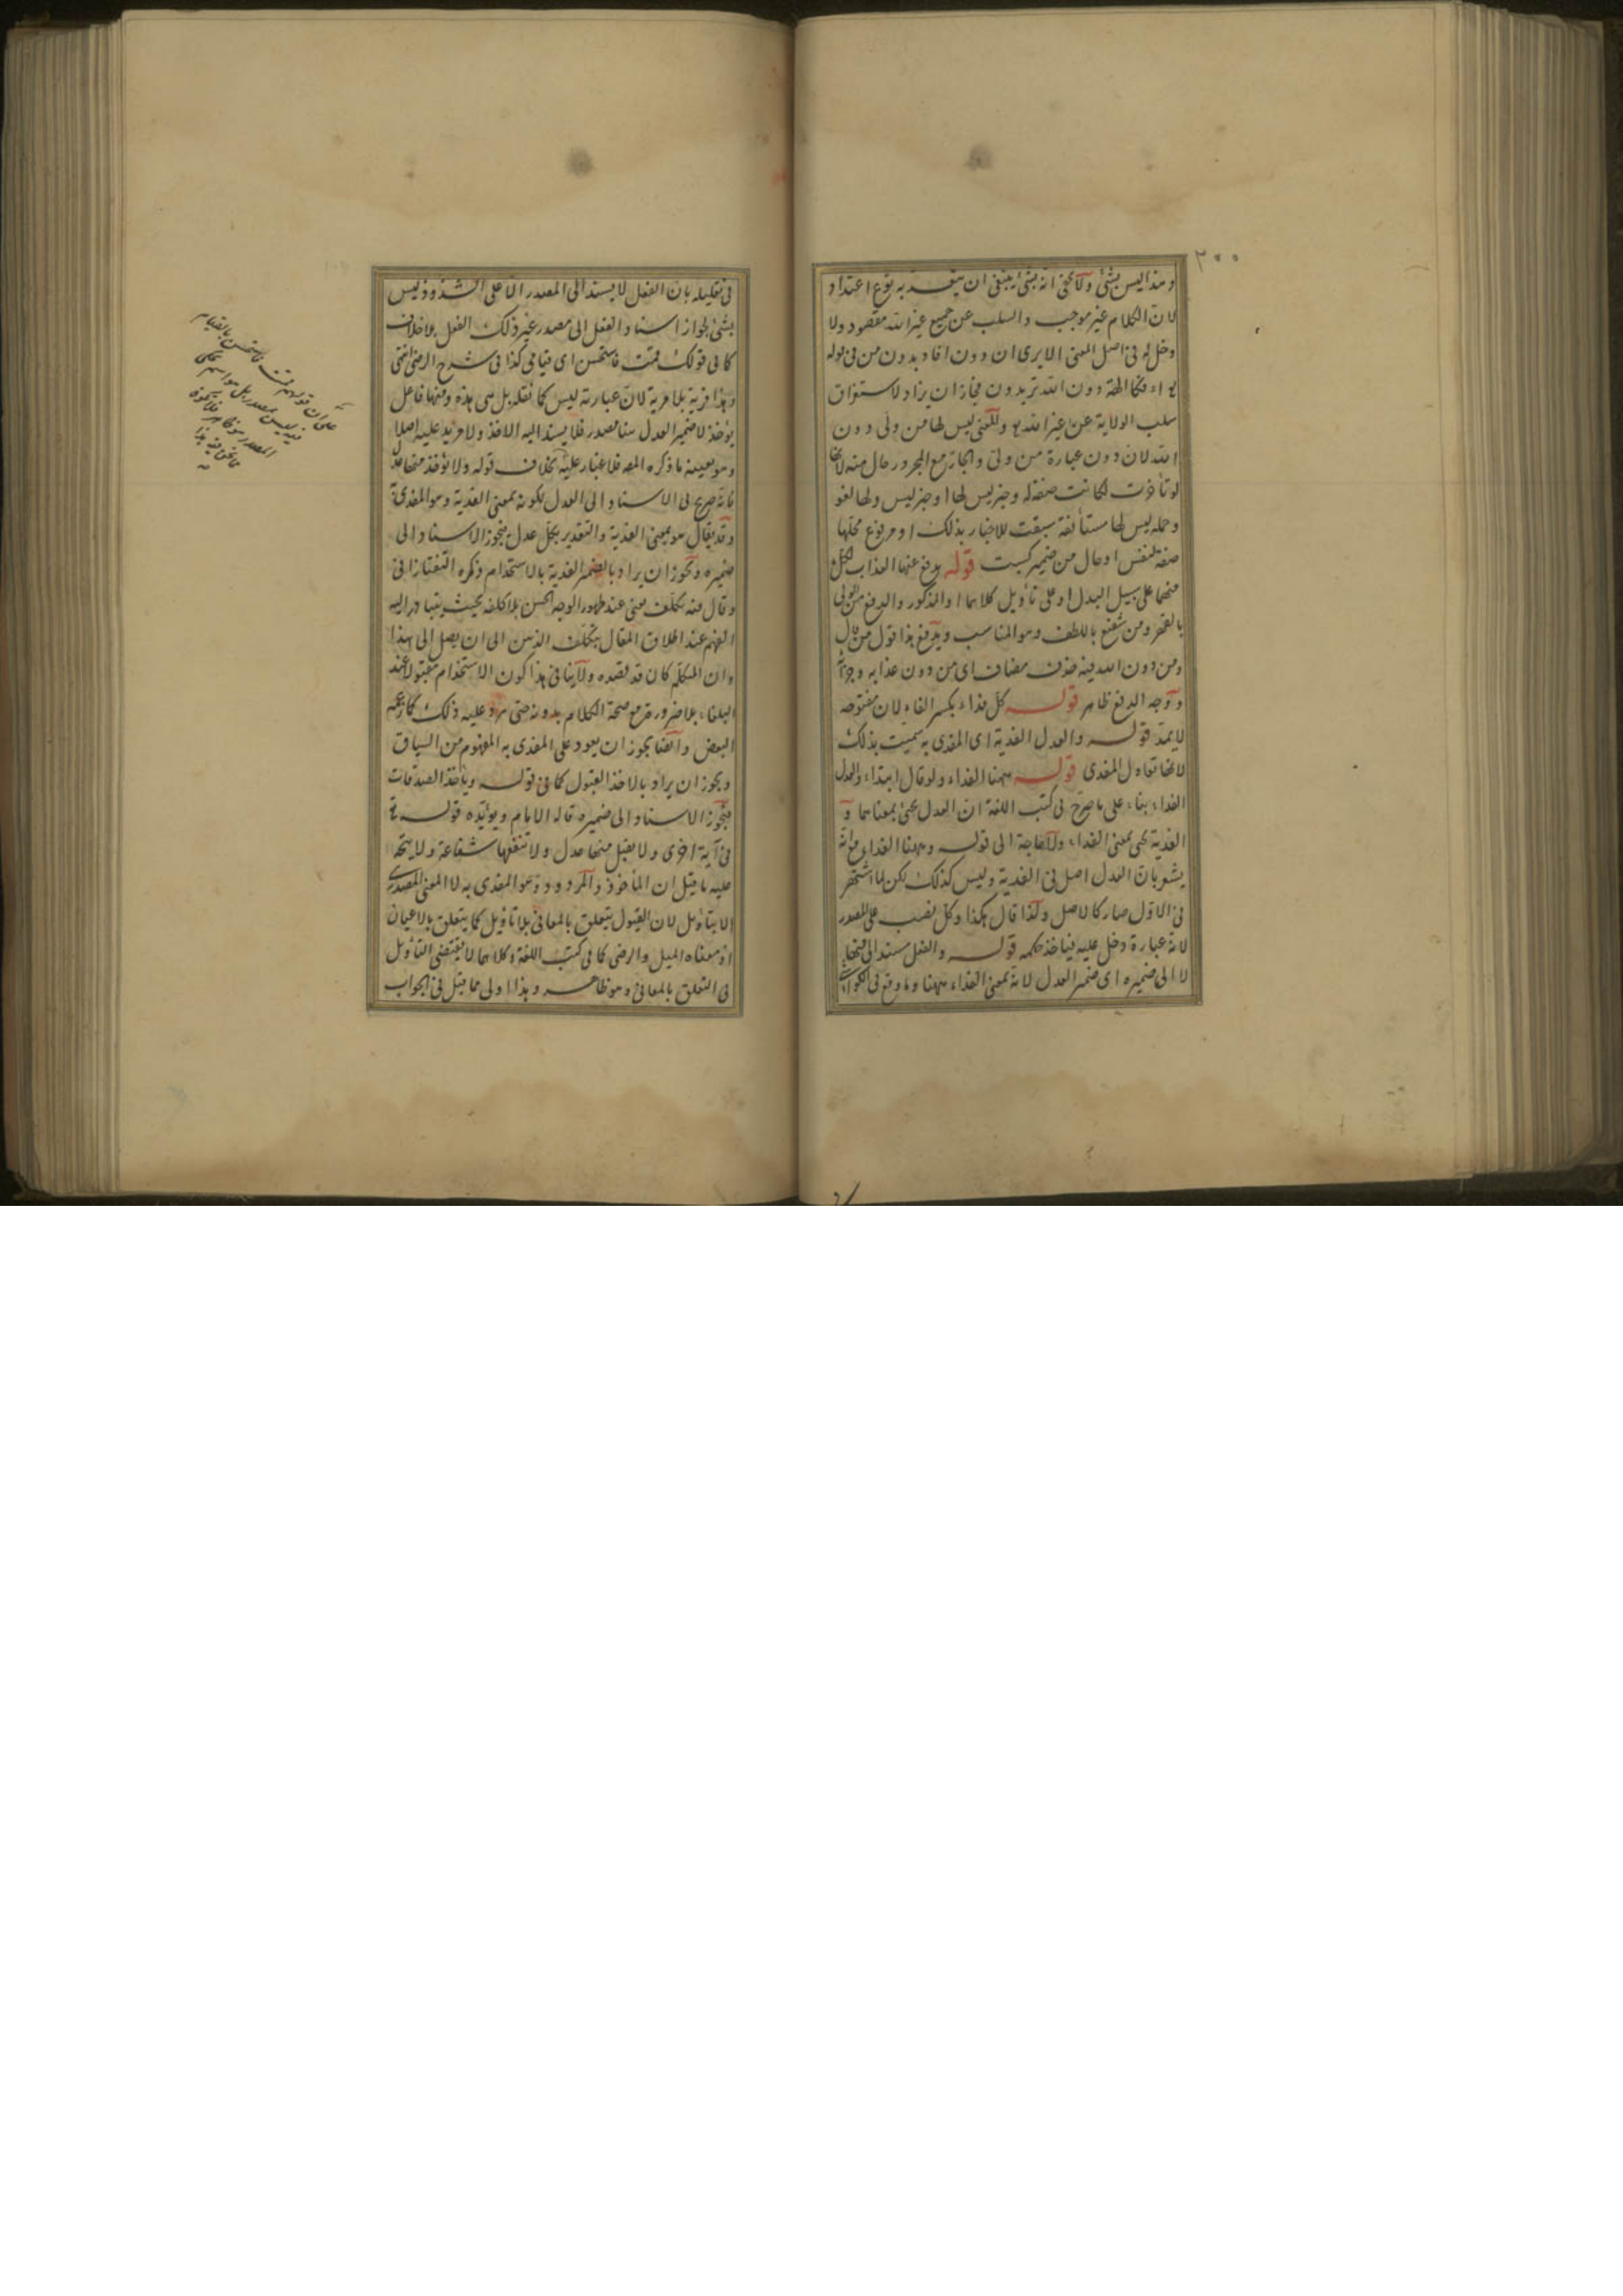 ٢٠٠
وهذا ليس بشئ ولا يخفى انه بشئ ينبغى ان يعتد به نوع اعتداد
لان الكلام غير موجب والسلب عن جميع غير الله مقصود ولا
دخل له فى اصل المعنى الا يرى ان دون افاد بدون من فى قوله
الهة دون الله تريدون فجاز ان يزاد لاستغراق
سلب الولاية عن غير الله والمعنى ليس لها من ولى دون
الله لان دون عبارة من ولى والجار مع المجرور حال منه لانها
لو تأخرت لكانت صفة له وخبر ليس لها او خبر ليس ولها لغو
وجملة ليس لها مستأنفة سيقت للاخبار بذلك او مرفوع محلها
صفة لنفس او حال من ضمير كسبت قوله يدفع عنها العذاب لكل
منهما على سبيل البدل او على تأويل كلاهما او المذكور والدفع من الولى
بالقهر ومن شفيع باللطف وهو المناسب ويدفع بذا قول من قال
ومن دون الله فيه حذف مضاف اى من دون عذابه وجزائه
ووجه الدفع ظاهر قوله كل فداء بكسر الفاء لان مفتوحه
لا يمد قوله والعدل الفدية اى المفدى به سميت بذلك
لانها تعادل المفدى قوله ههنا الفداء ولو قال ابتداء والعدل
الفداء بناء على ما صرح فى كتب اللغة ان العدل يجئ بمعناهما و
الفدية يجئ بمعنى الفداء ولا حاجة الى قوله وههنا الفداء مع انه
يشعر بان العدل اصل فى الفدية وليس كذلك لكن لما اشتهر
فى الاول صار كالاصل ولذا قال هكذا وكل نصب على المصدر
لانه عبارة دخل عليه فيأخذ حكمه قوله والفعل مسند الى منها
لا الى ضميره اى ضمير العدل لانه بمعنى الفداء ههنا وما وقع فى الكواشى
فى تعليله بان الفعل لا يسند الى المصدر الا على الشذوذ ليس
بشئ لجواز اسناد الفعل الى مصدر غير ذلك الفعل بلا خلاف
كما فى قولك قمت فاستحسن اى قيامى كذا فى شرح الرضى انتهى
وهذا فرية بلا مرية لان عبارته ليس كما نقله بل هى هذه ومنها فاعل
يؤخذ لا ضمير العدل هنا مصدر فلا يسند اليه الاخذ ولا مزيد عليه اصلا
وهو بعينه ما ذكره المص فلا غبار عليه بخلاف قوله ولا يؤخذ منها عدل
فانه صريح فى الاسناد الى العدل لكونه بمعنى الفدية وهو المفدى به
وقد يقال هو بمعنى الفدية والتقدير بكل عدل فيجوز الاسناد الى
ضميره ويجوز ان يراد بالضمير الفدية بالاستخدام ذكره التفتازانى
وقال فيه تكلف يعنى عند ظهور الوجه الحسن بلا كلفة بحيث يتبادر اليه
الفهم عند اطلاق المقال يتكلف الذهن الى ان يصل الى هذا
وان المتكلم كان قد قصده ولا ينافى هذا كون الاستخدام مقبولا عند
البلغاء بلا ضرورة مع صحة الكلام بدونه حتى يرد عليه ذلك كما زعمه
البعض وايضا يجوز ان يعود على المفدى به المفهوم من السياق
ويجوز ان يراد بالاخذ القبول كما فى قوله ويأخذ الصدقات
فيجوز الاسناد الى ضميره قاله الامام ويؤيده قوله تع
فى آية اخرى ولا يقبل منها عدل ولا تنفعها شفاعة ولا يتجه
عليه ما قيل ان المأخوذ والمردود وهو المفدى به لا المعنى المصدرى
الا بتأويل لان القبول يتعلق بالمعانى بلا تأويل كما يتعلق بالاعيان
اذ معناه الميل والرضى كما فى كتب اللغة وكلاهما لا يقتضى التأويل
فى التعلق بالمعانى وهو ظاهر وهذا اولى مما قيل فى الجواب
على ان قولهم قمت فاستحسن بالقيام
فيه ليس بمصدر بل هو اسم
المصدر هو ظاهر